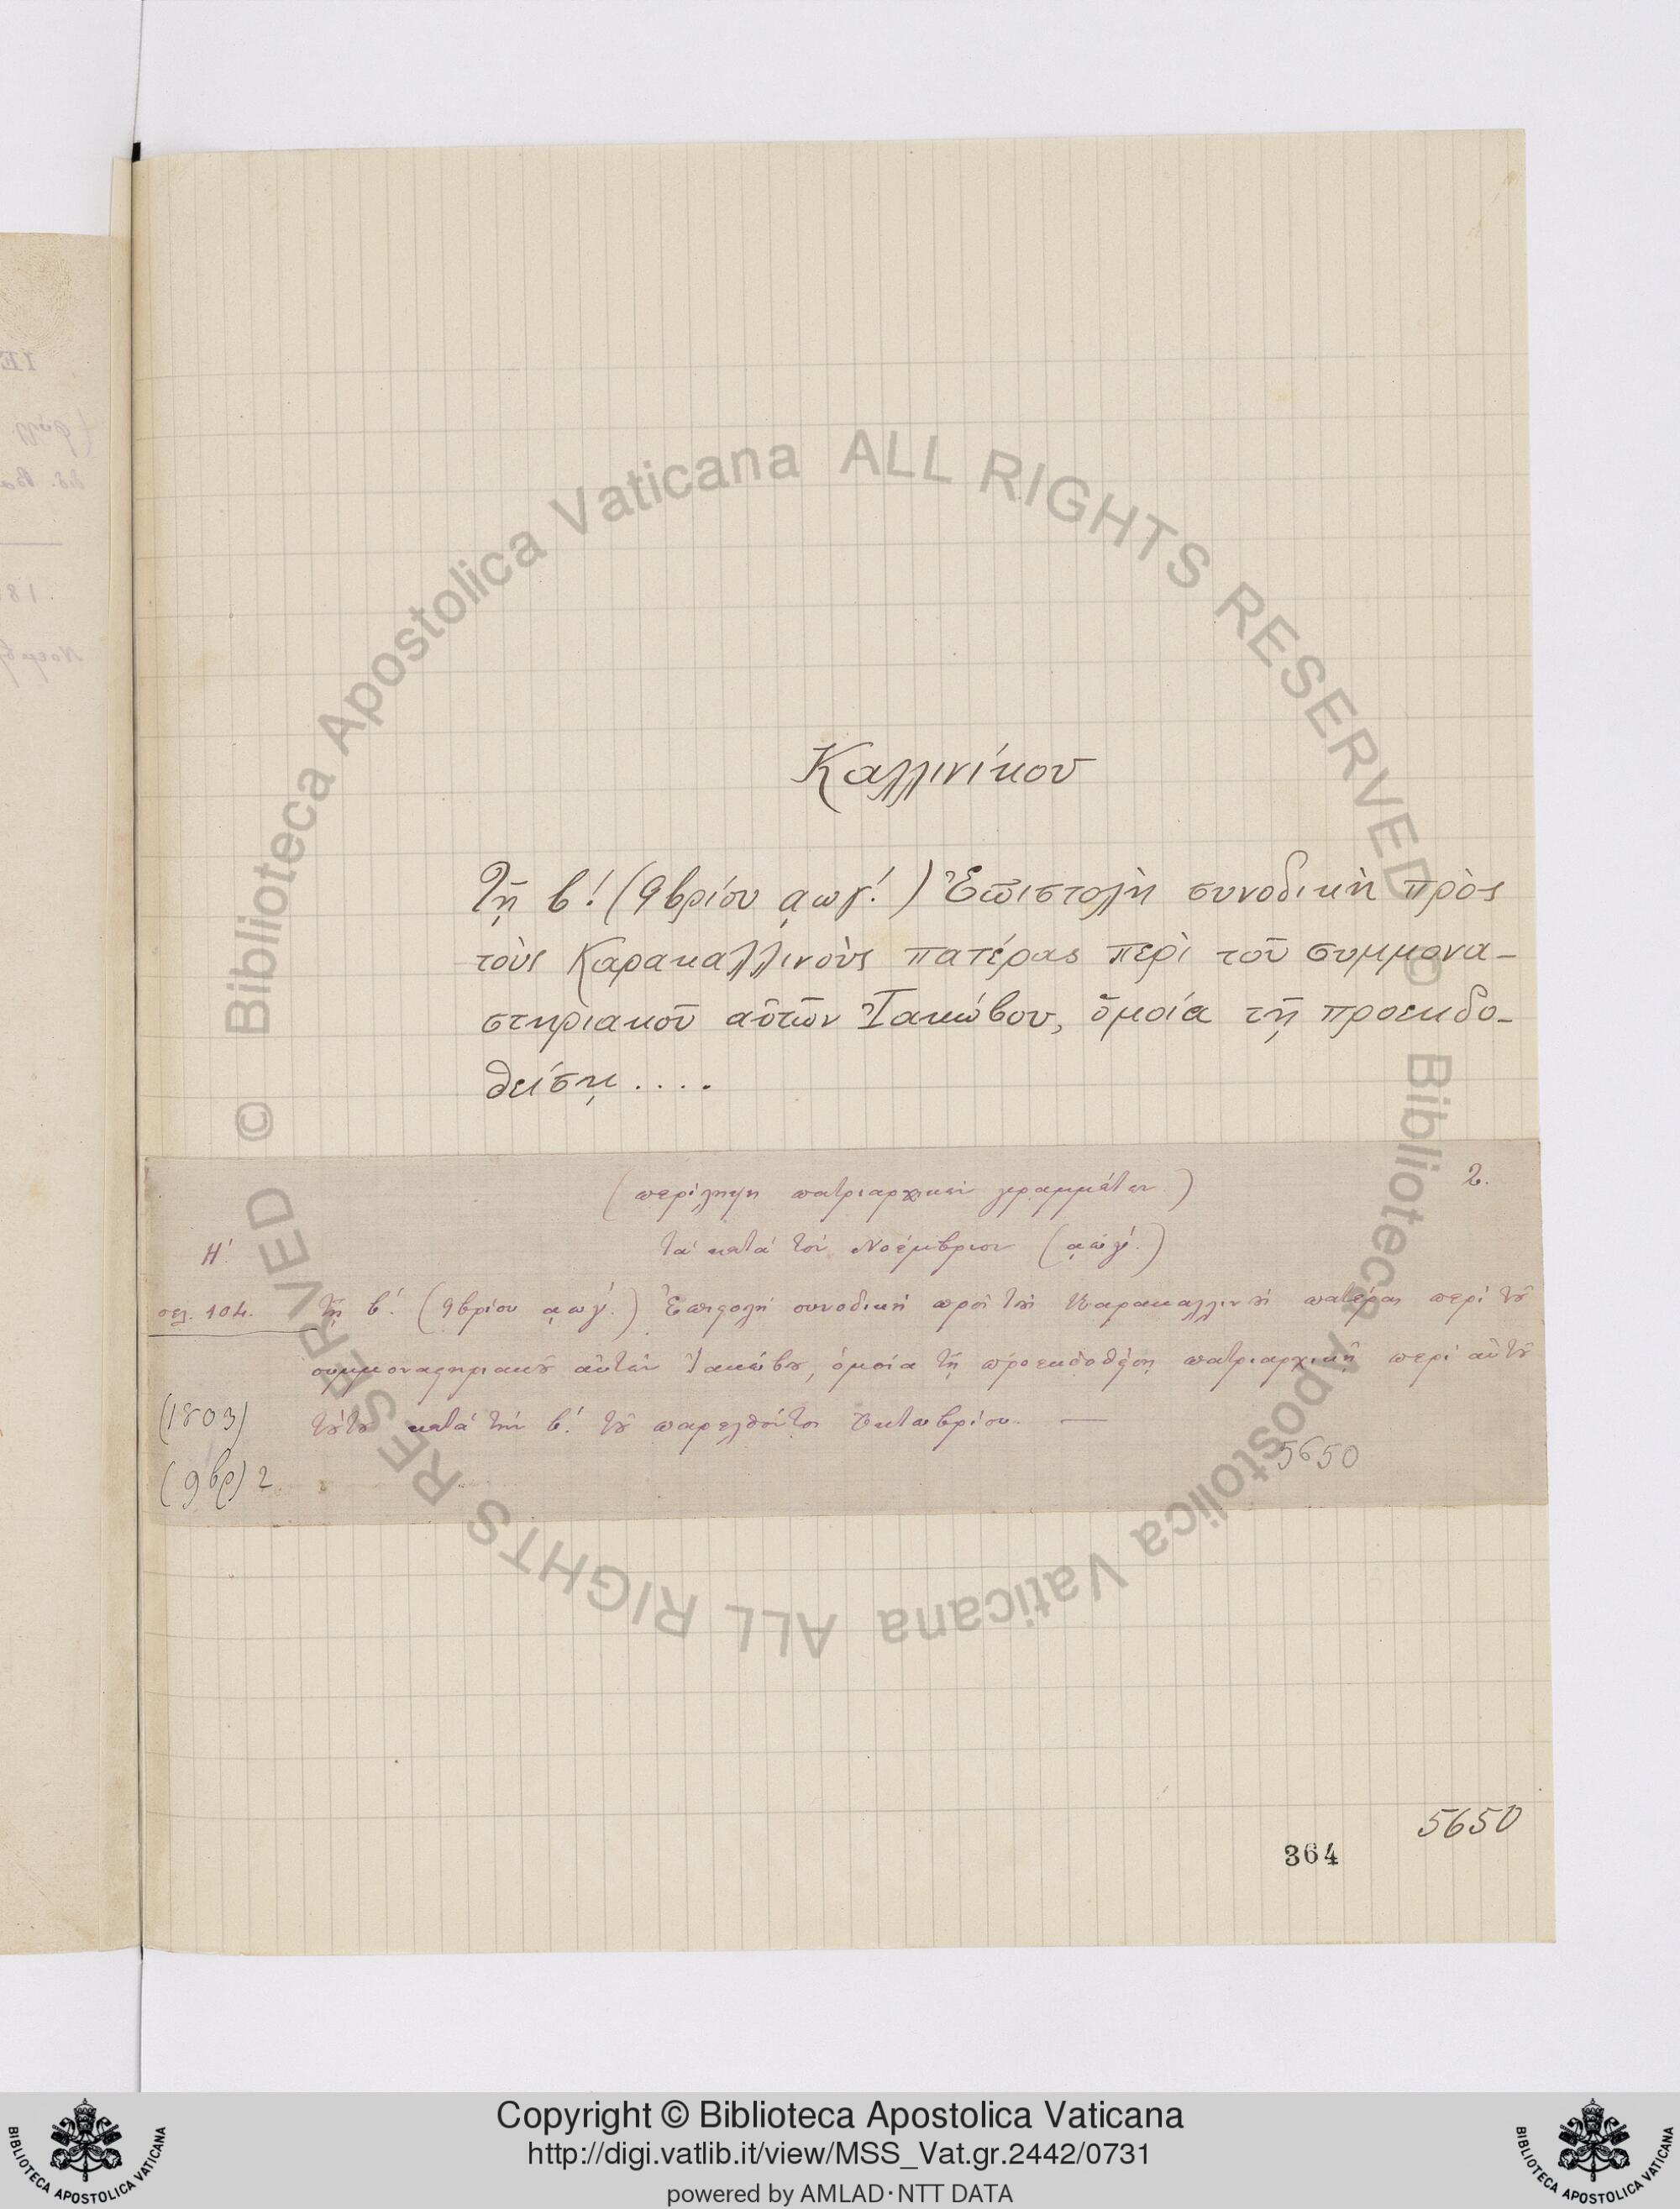 Καλλινίκου
Τῇ β! (9βρίου ͵αωγ΄.) Ἐπιστολὴ συνοδικὴ πρὸς
τοὺς Καρακαλλινοὺς πατέρας περὶ τοῦ συμμονα-
στηριακοῦ αὐτῶν Ἰακώβου, ὁμοία τῇ προεκδο-
θείσῃ....
(περίληψη πατριαρχικῶν γραμμάτων) 2.
Η΄. τὰ κατὰ τὸν Νοέμβριον (͵αωγ΄.)
σελ. 104. τῇ β΄. (9βρίου ͵αωγ΄.) Ἐπιϛολὴ συνοδικὴ πρὸς τȣ̀ς Καρακαλλινȣ̀ς πατέρας περὶ τȣ͂
συμμοναϛηριακȣ͂ αὐτῶν Ἰακώβȣ, ὁμοία τῇ προεκδοθείσῃ πατριαρχικῇ περὶ αὐτȣ͂
(1803) τȣ́τȣ κατὰ τὴν β΄. τȣ͂ παρελθόντος Ὀκτωβρίου. —
5650
(9βρ) 2
5650
364
© Biblioteca Apostolica Vaticana ALL RIGHTS RESERVED
© Biblioteca Apostolica Vaticana ALL RIGHTS RESERVED
Copyright © Biblioteca Apostolica Vaticana
http://digi.vatlib.it/view/MSS_Vat.gr.2442/0731
powered by AMLAD·NTT DATA
BIBLIOTECA APOSTOLICA VATICANA
BIBLIOTECA APOSTOLICA VATICANA